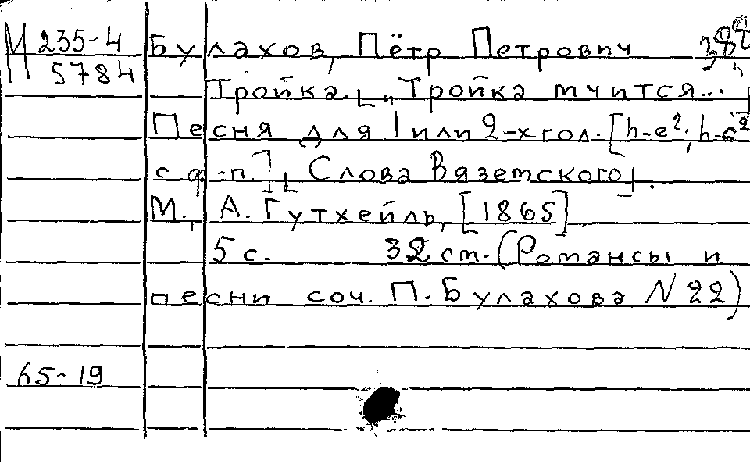 М 235-4 Булахов, Пётр Петрович
5784
Тройка. [„Тройка мчится...]
Песня для 1 или 2-х гол. [h-e²; h-e²]
с ф.-п.], [Слова Вяземского].
М., А. Гутхейль, [1865]
5 с. 32 ст. (Романсы и
песни соч. П. Булахова N 22)
65-19